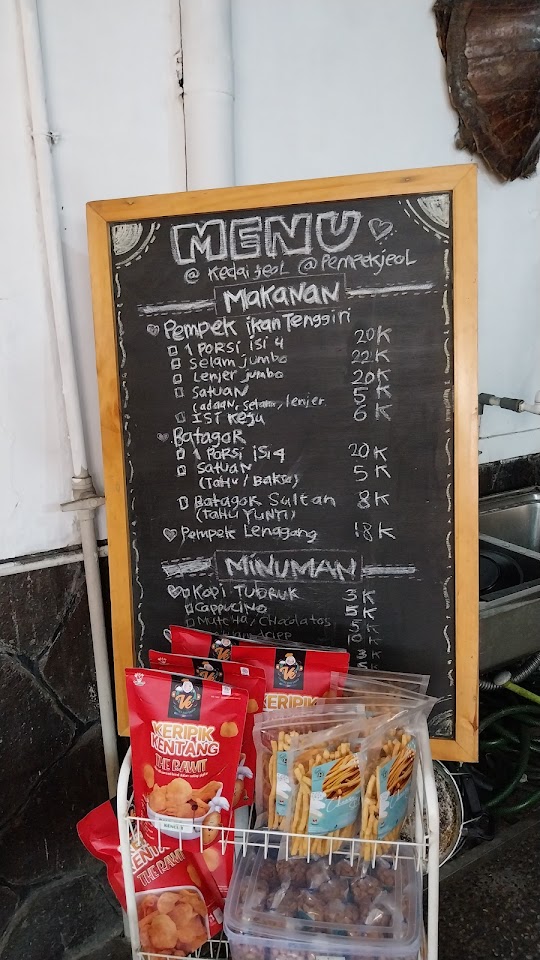 MENU
@ Kedai jeol @ Pempekjeol
MAKANAN
Pempek ikan Tenggiri
1 PORSI isi 4 20K
Selam jumbo 22K
Lenjer jumbo 20K
Satuan 5K
(adaan, selam, lenjer
ISI Keju 6K
Batagor
1 PORSI isi 4 20K
Satuan 5K
(TAHU / Bakso)
Batagor Sultan 8K
(TAHU YUNYI)
Pempek Lenggang 18K
MINUMAN
Kopi TUBRUK 3K
Cappucino 5K
5K
10
3K
KERIPIK
KENTANG
THE RAWIT
THE RAWIT